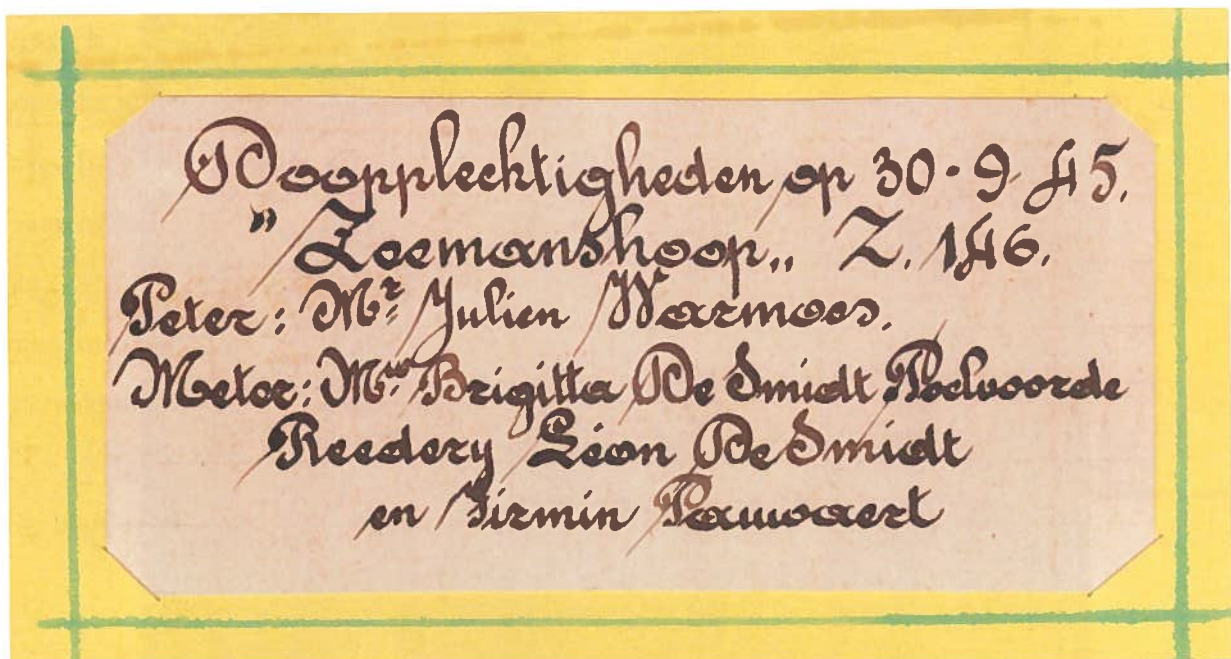 Doopplechtigheden op 30·9·45.
" Zeemanshoop„ Z. 146.
Peter: Mr. Julien Warmoes.
Meter: Mw Brigitta De Smidt Poelvoorde
Reedery Léon De Smidt
en Firmin Pauwaert